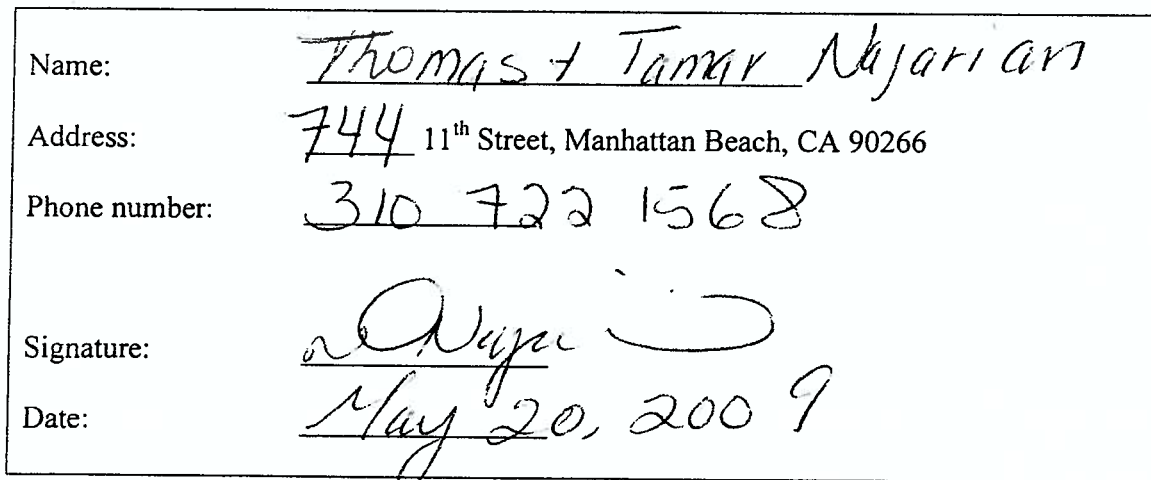 Name: Thomas + Tamar Najarian
Address: 744 11th Street, Manhattan Beach, CA 90266
Phone number: 310 722 1568
Signature:
Date: May 20, 2009